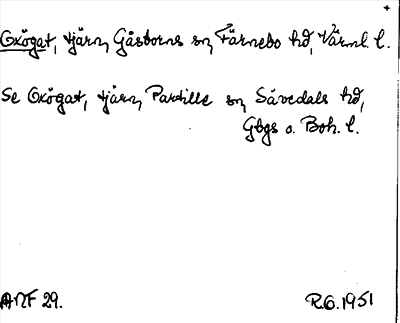 +
Oxögat, tjärn, Gåsborns sn, Färnebo hd, Värml. l.
Se Oxögat, tjärn, Partille sn, Sävedals hd,
Gbgs o. Boh. l.
ANF 29.
R.G. 1951